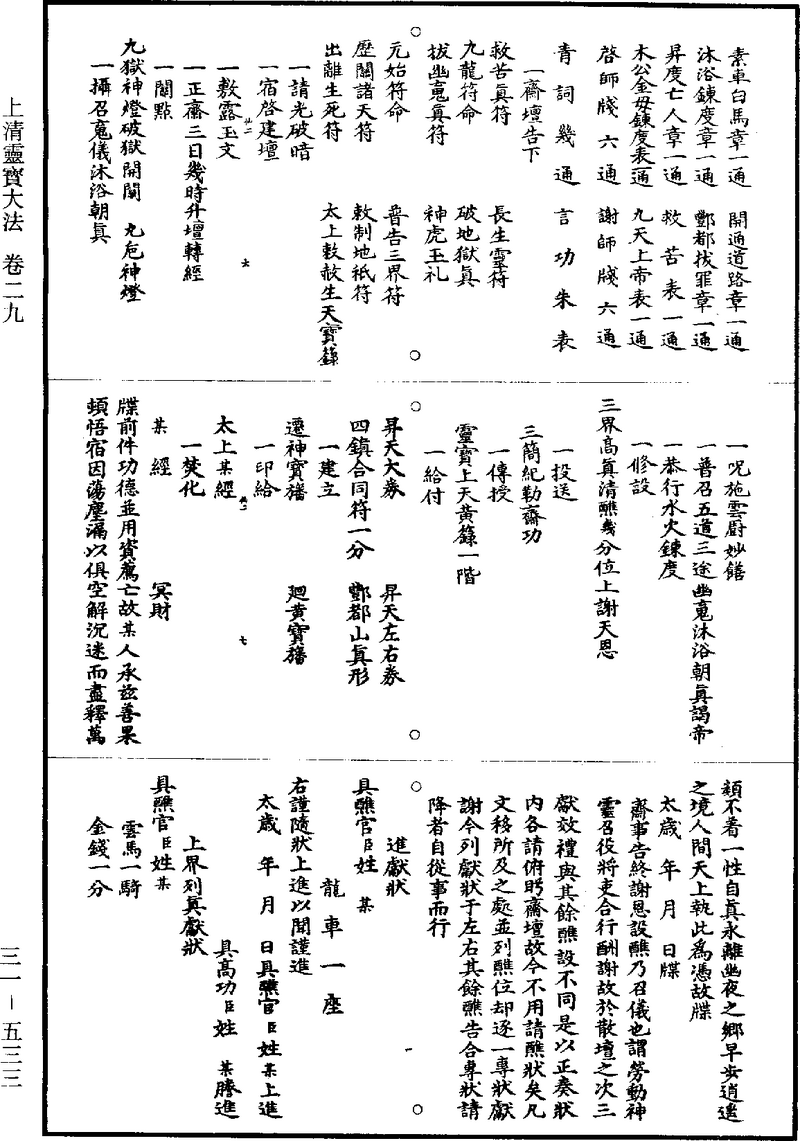 素車白馬章一通　開通道路章一通
沐浴鍊度章一通　酆都拔罪章一通
昇度亡人章一通　救苦表一通
木公金母鍊度表一通　九天上帝表一通
啓師牋六通　謝師牋六通
青詞幾通　言功朱表
一齋壇告下
救苦眞符　長生靈符
九龍符命　破地獄眞
拔幽䰟眞符　神虎玉札
元始符命　普告三界符
歷關諸天符　敕制地祇符
出離生死符　太上敕赦生天寶籙
一請光破暗
一宿啓建壇
一敷露玉文
一正齋三日幾時升壇轉經
一關點
九獄神燈破獄開關　九巵神燈
一攝召䰟儀沐浴朝眞
一呪施雲厨妙饍
一普召五道三途幽䰟沐浴朝眞謁帝
一恭行水火鍊度
一修設
三界高眞清醮幾分位上謝天恩
一投送
三簡紀勒齋功
一傳授
靈寶上天黄籙一階
一給付
昇天大券　昇天左右券
四鎮合同符一分　酆都山眞形
一建立
遷神寶旛　廻黄寶旛
一印給
太上某經
一焚化
某經　冥財
牒前件功德並用資薦亡故某人承兹善果
頓悟宿因蕩塵漏以俱空解沉迷而盡釋萬
類不着一性自眞永離幽夜之鄉早步逍遙
之境人間天上執此爲憑故牒
太歲　年　月　日牒
齋事告終謝恩設醮乃召儀也謂勞動神
靈召役將吏合行酬謝故於散壇之次三
獻效禮與其餘醮設不同是以正奏狀
内各請俯盻齋壇故今不用請醮狀矣凡
文移所及之處並列醮位却逐一專狀獻
謝今列獻狀于左右其餘醮告合專狀請
降者自從事而行
進獻狀
具醮官臣姓　某
龍車一座
右謹隨狀上進以聞謹進
太歲　年　月　日具醮官臣姓某上進
具高功臣姓　某謄進
上界列眞獻狀
具醮官臣姓某
雲馬一騎
金錢一分
上清靈寶大法　卷二九
三一－五三三